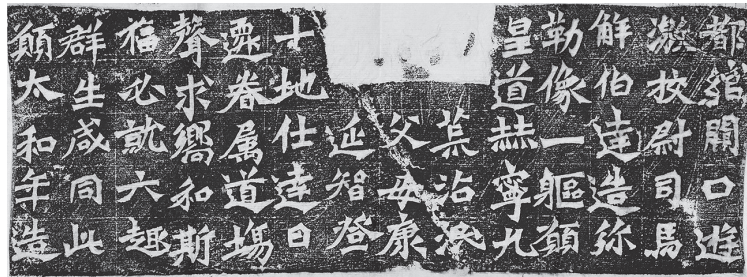 都綰闕口遊
激校尉司馬
解伯達造弥
勒像一軀願
皇道赫寧九
荒沾澤
父母康
延智登
十地仕達日
遷眷属道場
聲求嚮和斯
福必就六趣
群生咸同此
願太和年造